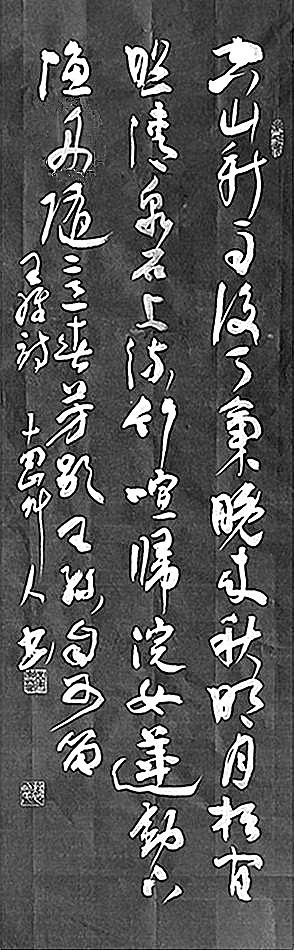 空山新雨後天氣晚來秋明月松間
照清泉石上流竹喧歸浣女蓮動下
漁舟隨意春芳歇王孫自可留
王維詩 人書